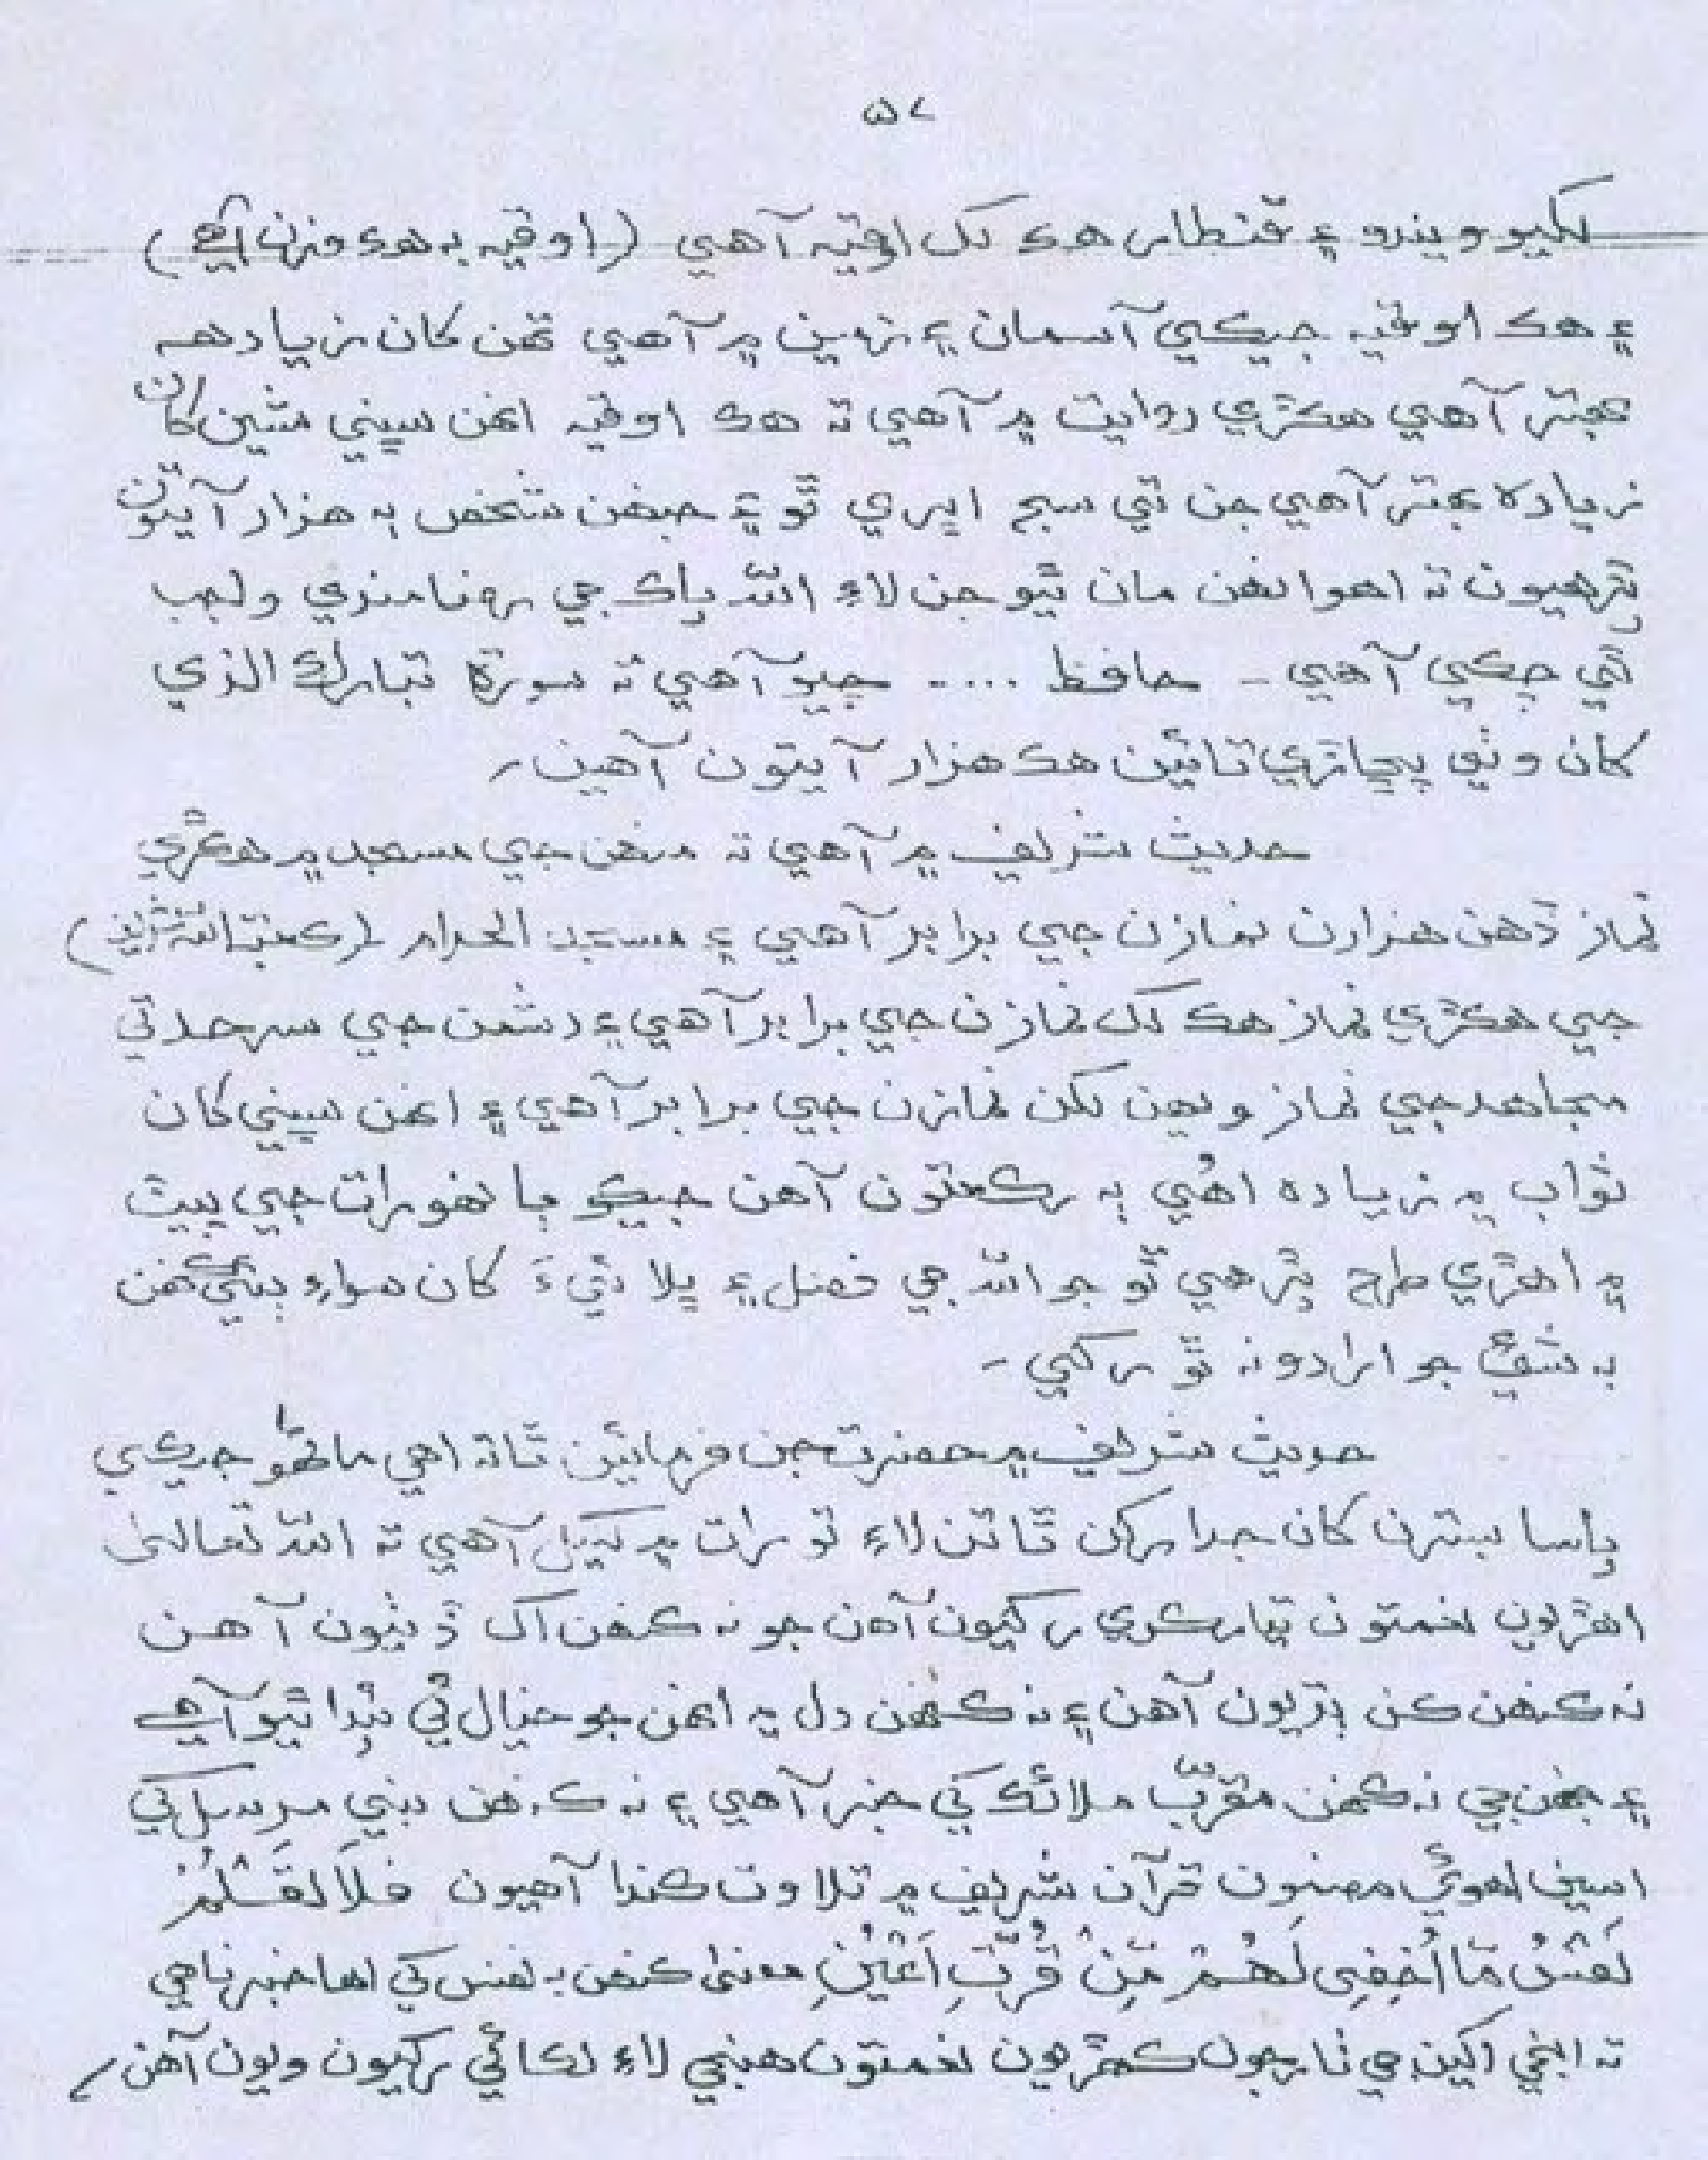 ۵۷
لکيو ويندو ۽ قنطار هڪ لک اوقيه آهي (اوقيه به هڪ وزن آهي)
۽ هڪ اوقيه جيڪي آسمان ۽ زمين ۾ آهي تنهن کان زيادهه
بهتر آهي هڪڙي روايت ۾ آهي ته هڪ اوقيه انهن سڀني مٿين کان
زياده بهتر آهي جن تي سج اڀري ٿو ۽ جنهن شخص ٻه هزار آيتون
پڙهيون ته اهو انهن مان ٿيو جن لاءِ الله پاڪ جي رضامندي واجب
ٿي چڪي آهي - حافظ .... چيو آهي ته سورة تبارك الذي
کان وٺي پڇاڙي تائين هڪ هزار آيتون آهين ۔
حديث شريف ۾ آهي ته منهن جي مسجد ۾ هڪڙي
نماز ڏهن هزارن نمازن جي برابر آهي ۽ مسجد الحرام (ڪعبة الله شريف)
جي هڪڙي نماز هڪ لک نمازن جي برابر آهي ۽ دشمن جي سرحد تي
مجاهد جي نماز ويهن لکن نمازن جي برابر آهي ۽ انهن سڀني کان
ثواب ۾ زياده اهي ٻه رڪعتون آهن جيڪو ٻانهو رات جي پيٽ
۾ اهڙي طرح پڙهي ٿو جو الله جي فضل ۽ ڀلائيءَ کان سواءِ ٻئي ڪنهن
به شيءِ جو ارادو نه ٿو رکي -
حديث شريف ۾ حضرت جن فرمائين ٿا ته اهي ماڻهو جيڪي
پاسا بسترن کان جدا رکن ٿا تن لاءِ تورات ۾ لکيل آهي ته الله تعاليٰ
اهڙيون نعمتون تيار ڪري رکيون آهن جو نه ڪنهن اک ڏٺيون آهن
نه ڪنهن ڪن ٻڌيون آهن ۽ نه ڪنهن دل ۾ انهن جو خيال ئي پيدا ٿيو آهي
۽ جنهن جي نه ڪنهن مقرّب ملائڪ کي خبر آهي ۽ نه ڪنهن نبي مرسل کي
اسين اهوئي مضمون قرآن شريف ۾ تلاوت ڪندا آهيون فَلَا تَعْلَمُ
نَفْسٌ مَّا أُخْفِيَ لَهُمْ مِّنْ قُرَّةِ أَعْيُنٍ معنيٰ ڪنهن به نفس کي اها خبر ناهي
ته انهي اکين جي ٺار جون ڪهڙيون نعمتون هنجي لاءِ لڪائي رکيون ويون آهن ۔